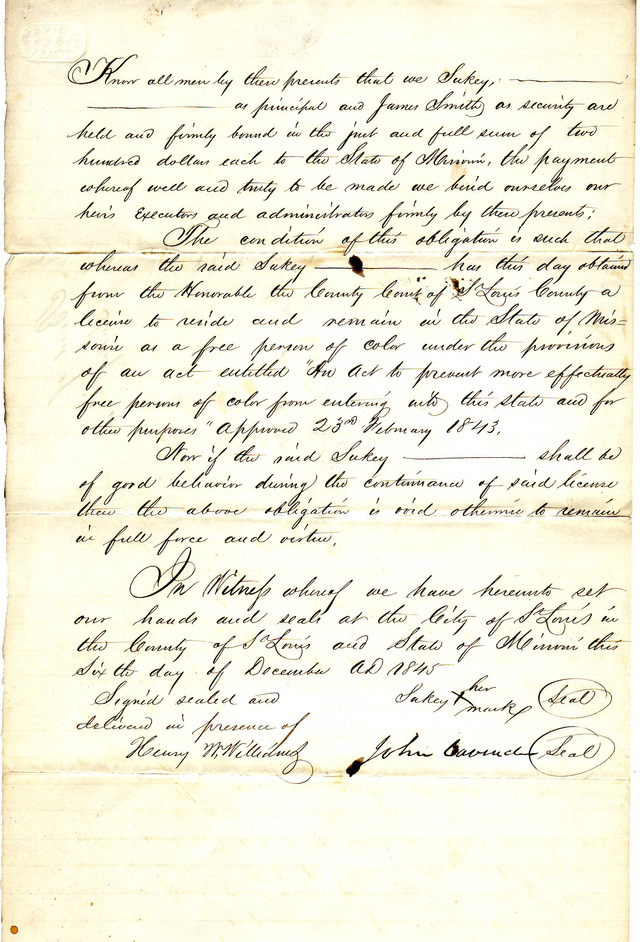 Know all men by these presents that we Sukey,
as principal and James Smith as security are
held and firmly bound in the just and full sum of two
hundred dollars each to the State of Missouri, the payment
whereof well and truly to be made we bind ourselves our
heirs Executors and administrators firmly by these presents;
The condition of this obligation is such that
whereas the said Sukey has this day obtained
from the Honorable the County Court of St Louis County a
license to reside and remain in the State of Mis=
souri as a free person of color under the provisions
of an act entitled "An Act to prevent more effectually
free persons of color from entering into this state and for
other purposes" Approved 23rd February 1843.
Now if the said Sukey shall be
of good behavior during the continuance of said license
then the above obligation is void otherwise to remain
in full force and virtue.
In Witness whereof we have hereunto set
our hands and seals at the City of St Louis in
the County of St Louis and State of Missouri this
Six the day of December AD 1845
Signed sealed and Sukey X her mark Seal
delivered in presence of
Henry W. Williams John Cavender Seal